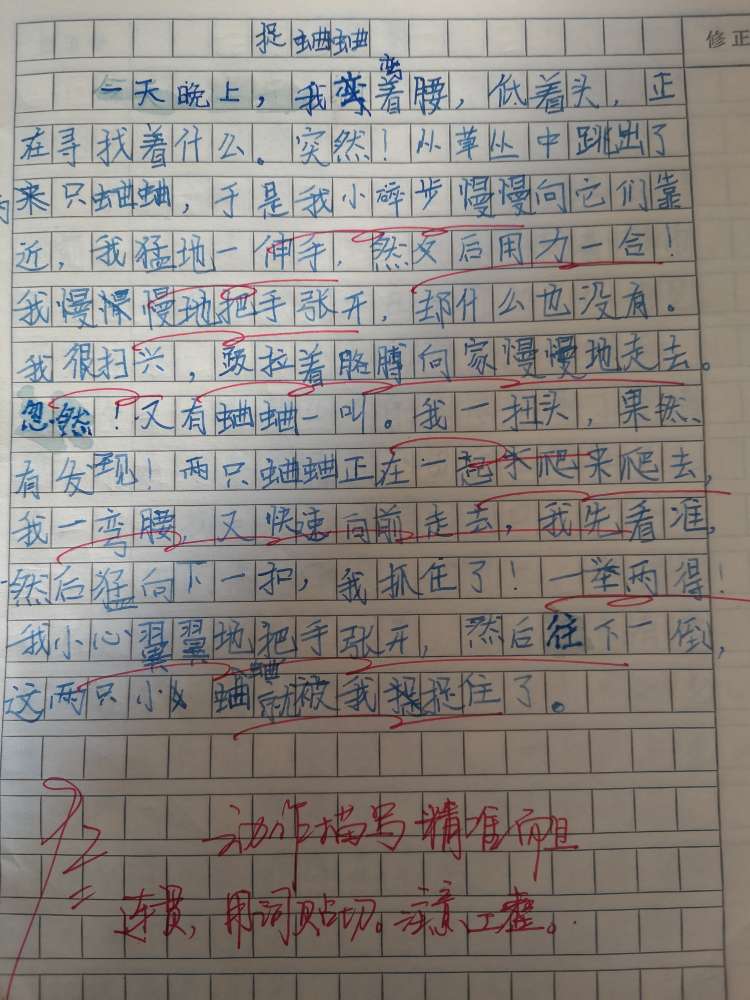 捉蛐蛐
修正
一天晚上，我弯着腰，低着头，正
在寻找着什么。突然！从草丛中跳出了
来只蛐蛐，于是我小碎步慢慢向它们靠
近，我猛地一伸手，然后用力一合！
我慢慢地把手张开，却什么也没有。
我很扫兴，耷拉着胳膊向家慢慢地走去。
忽然！又有蛐蛐一叫。我一扭头，果然、
有发现！两只蛐蛐正在一起爬来爬去，
我一弯腰，又快速向前走去，我先看准，
然后猛向下一扣，我抓住了！一举两得！
我小心翼翼地把手张开，然后往下一倒，
这两只小蛐蛐就被我捉住了。
动作描写精准而且
连贯，用词贴切。注意工整。